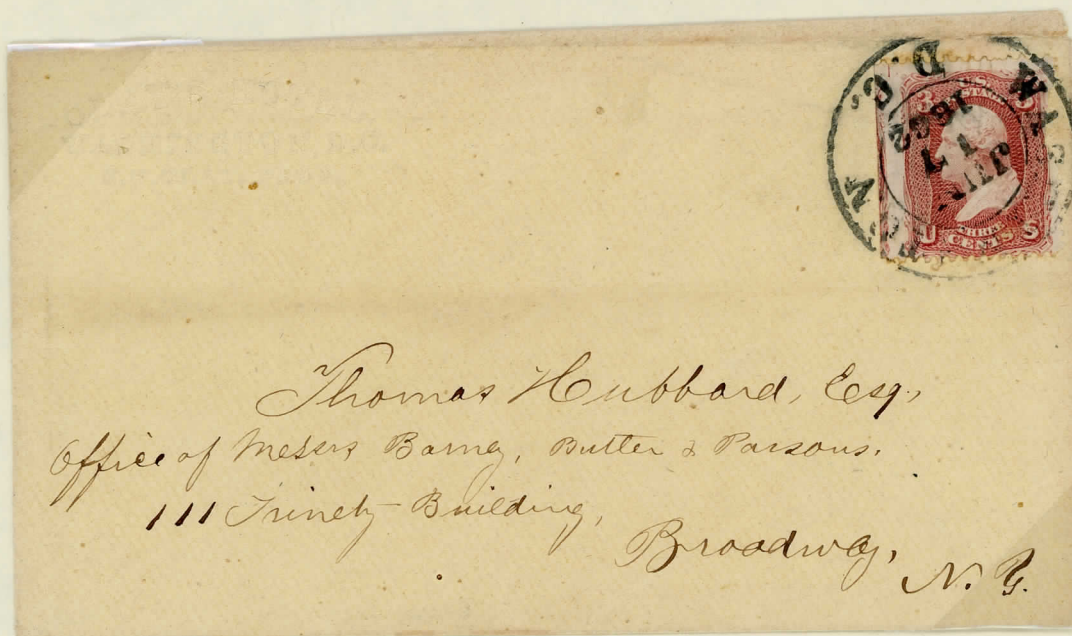 WASHINGTON D.C.
1862
3 U.S. POSTAGE 3
U THREE CENTS S
Thomas Hubbard, Esq,
Office of Messrs Barney, Butler & Parsons.
111 Trinety Building,
Broadway,
N. Y.